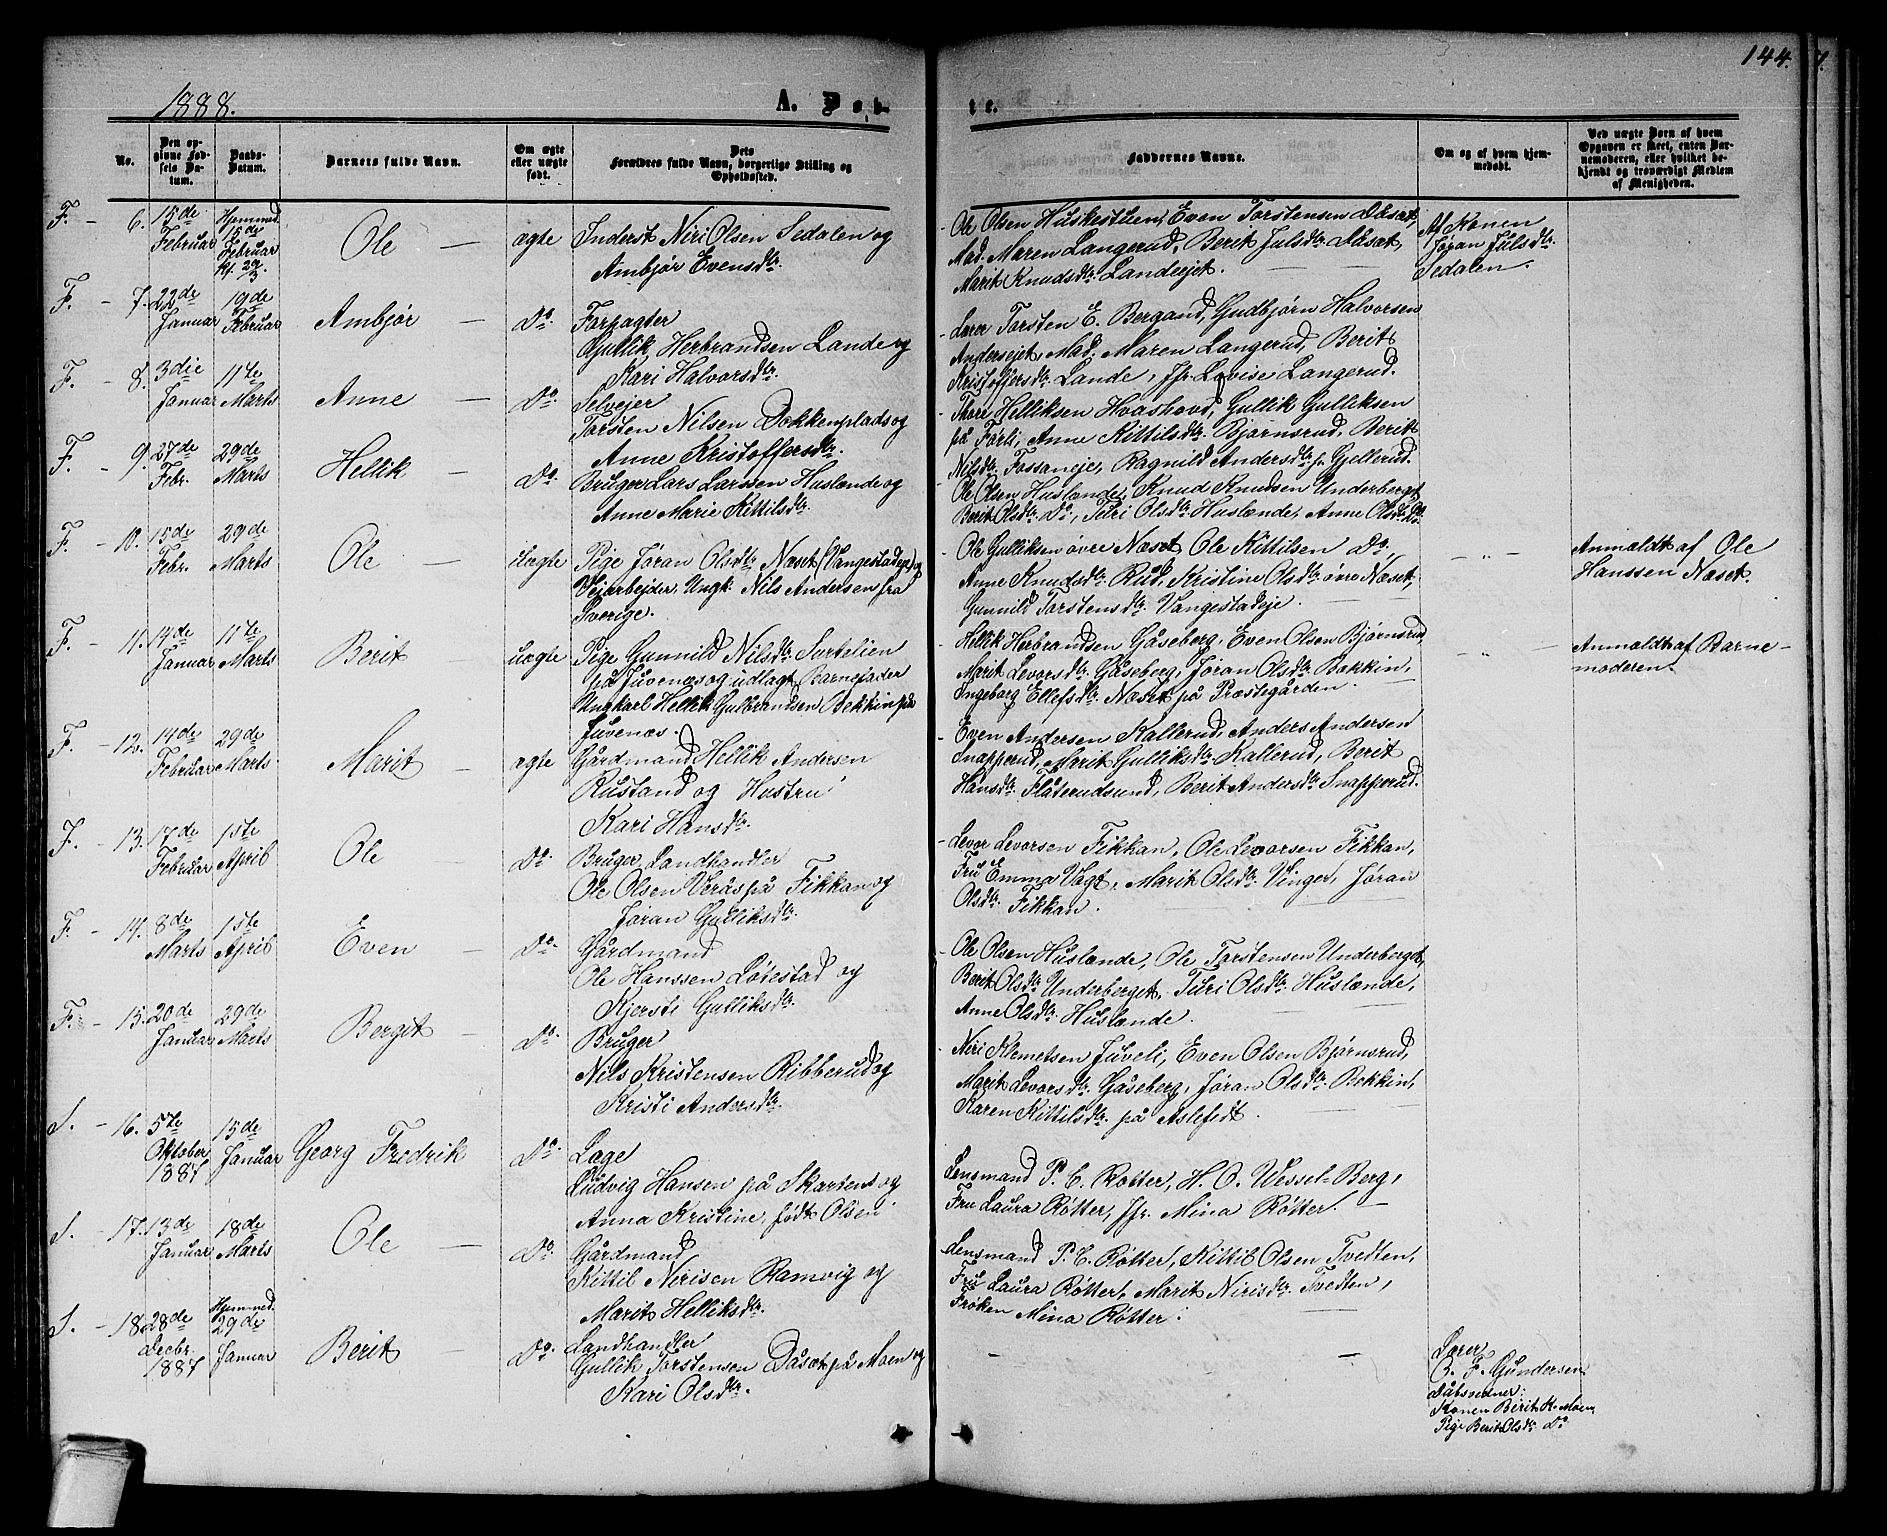 144.
1888.
A. Døb-
te.
No.
Den op-
givne Fød-
sels Da-
tum.
Daabs-
Datum.
Barnets fulde Navn.
Om ægte
eller uægte
født.
Dets
Forældres fulde Navn, borgerlige Stilling og
Opholdssted.
Faddernes Navne.
Om og af hvem hjem-
medøbt.
Ved uægte Børn af hvem
Opgaven er skeet, enten Bar-
nemoderen, eller hvilket be-
kjendt og troværdigt Medlem
af Menigheden.
F. - 6.
15de
Februar
Hjemmed.
15de
Februar
Ole
ægte
Inderst Niri Olsen Sedalen og
Ambjør Evensdtr.
Ole Olsen Huskestuen, Even Torstensen Aasæt,
Mad. Maren Langerud, Berit Julsdtr. Aasæt,
Marit Knudsdtr. Landeiet.
Af Konen
Jøran Julsdtr.
Sedalen.
F. - 7.
22de
Januar
19de
Februar
Ambjør
Do.
Forpagter
Gullik Herbrandsen Lande og
Kari Halvorsdtr.
Lærer Torsten E. Bergand, Gudbjørn Halvorsen
Anderseiet, Mad. Maren Langerud, Berit
Kristoffersdtr. Lande, Jfr. Lovise Langerud.
F. - 8.
3die
Januar
11te
Marts
Anne
Do.
Selveier
Torsten Nilsen Dokkenplads og
Anne Kristoffersdtr.
Thore Helliksen Hvashovd, Gullik Gulliksen
på Førli, Anne Kittilsdtr. Bjørnsrud, Berit
Nilsdtr. Fossaneie, Ragnild Andersdtr. Gjellerud.
F. - 9.
27de
Febr.
29de
Marts
Hellik
Do.
Bruger Lars Larssen Huslænde og
Anne Marie Kittilsdtr.
Ole Olsen Huslænde, Knud Knudsen Underberget,
Berit Olsdtr. Do, Turi Olsdtr. Huslænde, Anne Olsdtr. Do.
F. - 10.
15de
Febr.
29de
Marts
Ole
uægte
Pige Jøran Olsdtr. Næset (Vangestadeje) og
Veiarbejder, Ungk. Nils Andersen fra
Sverige.
Ole Gulliksen øvre Næset, Ole Kittilsen Do,
Anne Knudsdtr. Rud, Kristine Olsdtr. øvre Næset,
Gunnild Torstensdtr. Vangestadeie.
Anmeldt af Ole
Hanssen Næset.
F. - 11.
14de
Januar
11te
Marts
Berit
uægte
Pige Gunnild Nilsdtr. Sortelien
på Juvenæs og udlagt Barnefader
Ungkarl Hellik Gulbrandsen Bekkin på
Juvenæs.
Hellik Herbrandsen Gåseberg, Even Olsen Bjørnsrud,
Marit Levorsdtr. Gåseberg, Jøran Olsdtr. Bekkin,
Ingeborg Ellefsdtr. Næset på Præstegården.
Anmeldt af Barne-
moderen.
F. - 12.
14de
Februar
29de
Marts
Marit
ægte
Gårdmand Hellik Andersen
Rustand og Hustru
Kari Hansdtr.
Even Andersen Kallerud, Anders Andersen
Snapperud, Marit Gulliksdtr. Kallerud, Berit
Hansdtr. Flåterudsund, Berit Andersdtr. Snapperud.
F. - 13.
17de
Februar
1ste
April
Ole
Do.
Bruger, Landhandler
Ole Olsen Verås på Fikkan og
Jøran Gulliksdtr.
Levor Levorsen Fikkan, Ole Levorsen Fikkan,
Fru Emma Vogt, Marit Olsdtr. Vinger, Jøran
Olsdtr. Fikkan.
F. - 14.
8de
Marts
1ste
April
Even
Do.
Gårdmand
Ole Hanssen Løvestad og
Kjersti Gulliksdtr.
Ole Olsen Huslænde, Ole Torstensen Underberget,
Berit Olsdtr. Underberget, Turi Olsdtr. Huslænde,
Anne Olsdtr. Huslænde.
F. - 15.
20de
Januar
29de
Marts
Bergit
Do.
Bruger
Nils Kristensen Ribberud og
Kristi Andersdtr.
Niri Klemetsen Juveli, Even Olsen Bjørnsrud,
Marit Levorsdtr. Gåseberg, Jøran Olsdtr. Bekkin,
Karen Kittilsdtr. på Aslefedt.
S. - 16.
5te
Oktober
1887
15de
Januar
Georg Fredrik
Do.
Læge
Ludvig Hansen på Skartens og
Anna Kristine, født Olsen
Lensmand P. C. Røtter, H. O. Wessel-Berg,
Fru Laura Røtter, Jfr. Mina Røtter.
S. - 17.
13de
Januar
18de
Marts
Ole
Do.
Gårdmand
Kittil Nirisen Ramvig og
Marit Helliksdtr.
Lensmand P. C. Røtter, Kittil Olsen Tvedten,
Fru Laura Røtter, Marit Nirisdtr. Tvedten,
Frøken Mina Røtter.
S. - 18.
28de
Decbr.
1887
Hjemmed.
29de
Januar
Berit
Do.
Landhandler
Gullik Torstensen Dåset på Moen og
Kari Olsdtr.
Lærer
B. F. Gundersen
Dåbsvidner:
Konen Berit K. Moen,
Pige Berit Olsdtr. Do